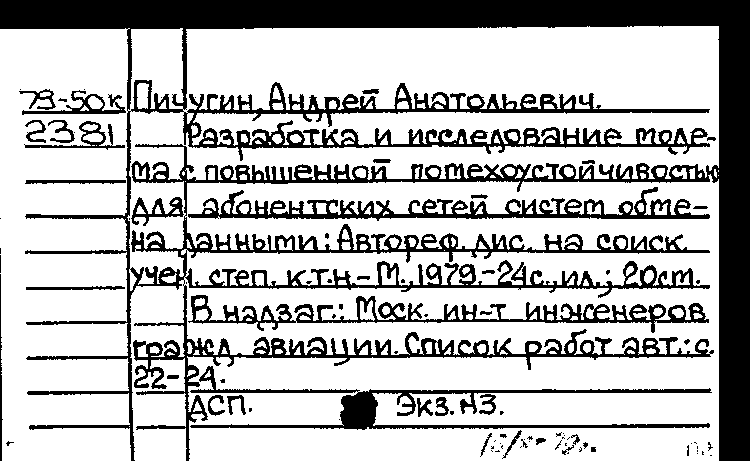 79-50к Пичугин, Андрей Анатольевич.
2381 Разработка и исследование моде-
ма с повышенной помехоустойчивостью
для абонентских сетей систем обме-
на данными: Автореф. дис. на соиск.
учен. степ. к.т.н.-М.,1979.-24с.,ил.; 20см.
В надзаг.: Моск. ин-т инженеров
гражд. авиации. Список работ авт.: с.
22-24.
ДСП. Экз.№3.